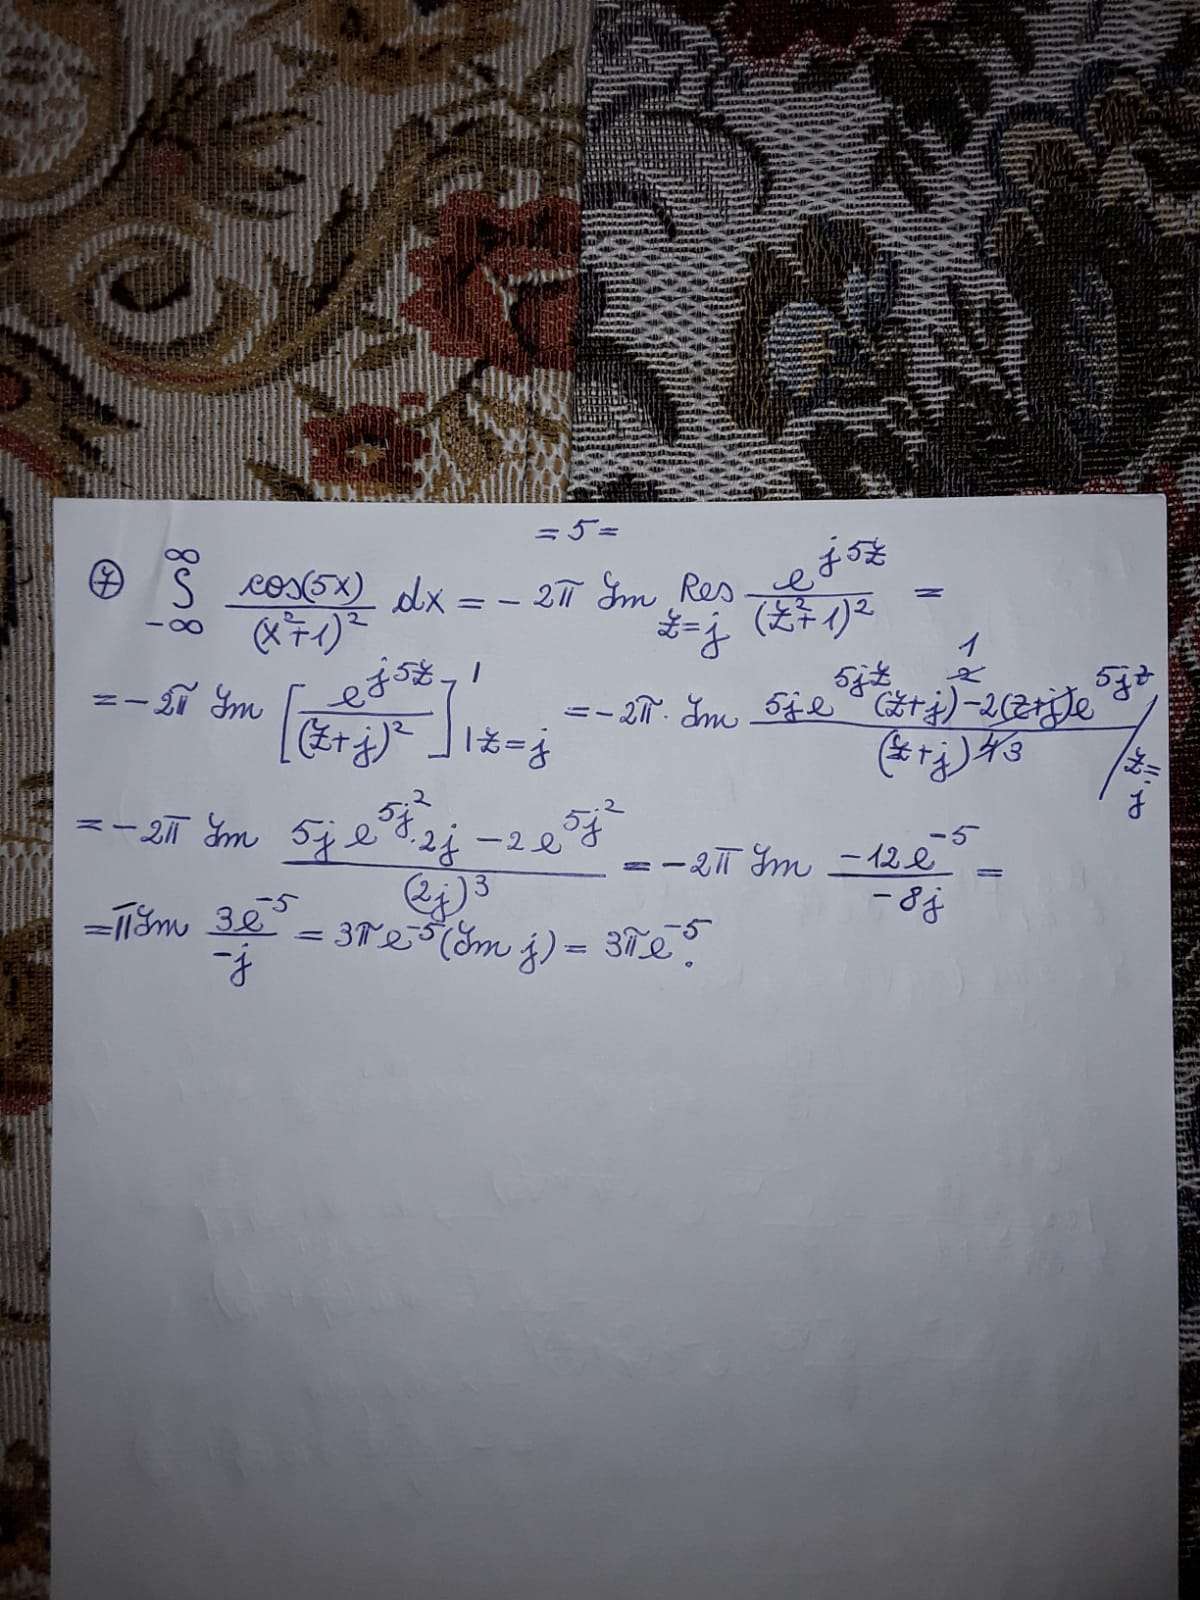 =5=
⑦ ∞∫-∞ cos(5x)/(x²+1)² dx = -2π Im Res z=j e^{j5z}/(z²+1)² =
= -2π Im [e^{j5z}/(z+j)²]' |z=j = -2π · Im (5j e^{5jz}(z+j)^{2̶ 1} - 2(z+j)e^{5jz})/(z+j)^{4̶ 3} / z=j
= -2π Im (5j e^{5j²}·2j - 2e^{5j²})/(2j)³ = -2π Im (-12e^{-5})/(-8j) =
= π Im 3e^{-5}/(-j) = 3πe^{-5}(Im j) = 3πe^{-5}.